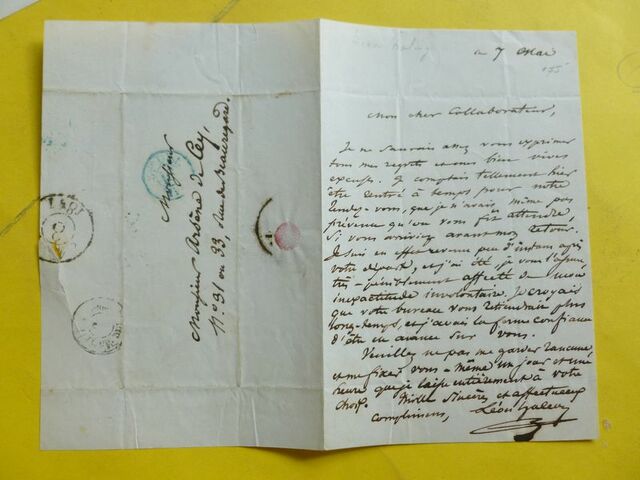 Monsieur
Monsieur Arsène de Cey,
N.° 31 ou 33, Rue de Beauregard.
ce 7 Mai
Mon cher Collaborateur,
Je ne saurais assez vous exprimer
tous mes regrets et mes bien vives
excuses. Je comptais tellement hier
être rentré à temps pour notre
rendez-vous, que je n'avais même pas
prévenu qu'on vous fît attendre,
si vous arriviez avant mon retour.
Je suis en effet revenu peu d'instans après
votre départ, et j'ai été je vous
très péniblement affecté de mon
inexactitude involontaire. Je croyais
que votre bureau vous retiendrait plus
long-temps, et j'avais la ferme confiance
d'être en avance sur vous.
Veuillez ne pas me garder rancune
et me fixer vous-même un jour et une
heure que je laisse entièrement à votre
choix. Mille sincères et affectueux
complimens,
Léon Halévy